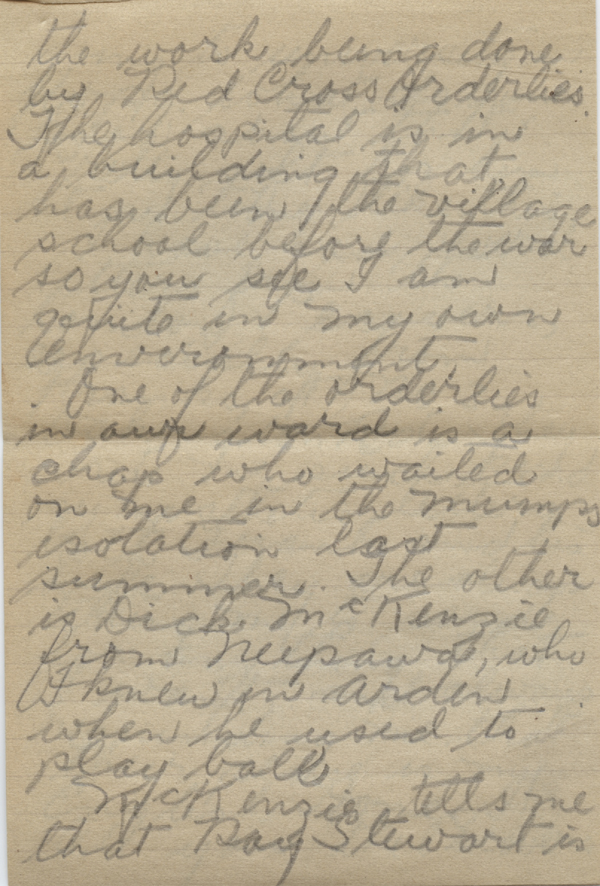 the work being done
by Red Cross Orderlies.
The hospital is in
a building that
has been the village
school before the war
so you see I am
quite in my own
environment.
. One of the orderlies
in our ward is a
chap who waited
on me in the mumps
isolation last
summer. The other
is Dick McKenzie
from Neepawa, who
I knew in Arden
when he used to
play ball
McKenzie tells me
that Ray Stewart is